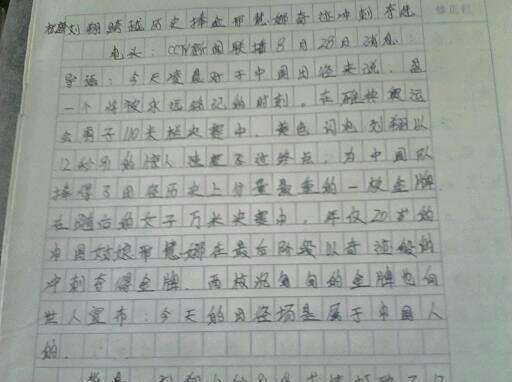 标题刘翔跨越历史捧金邢慧娜奇迹冲刺夺冠
电头：CCTV新闻联播8月28日消息：
导语：今天凌晨对于中国田径来说，是
一个将被永远铭记的时刻。在雅典奥运
会男子110米栏决赛中，黄色闪电刘翔以
12秒91的惊人速度飞过终点，为中国队
捧得了田径历史上分量最重的一枚金牌
在随后的女子万米决赛中，年仅20岁的
中国姑娘邢慧娜在最后阶段以奇迹般的
冲刺夺得金牌。两枚沉甸甸的金牌也向
世人宣布：今天的田径场是属于中国人
的。